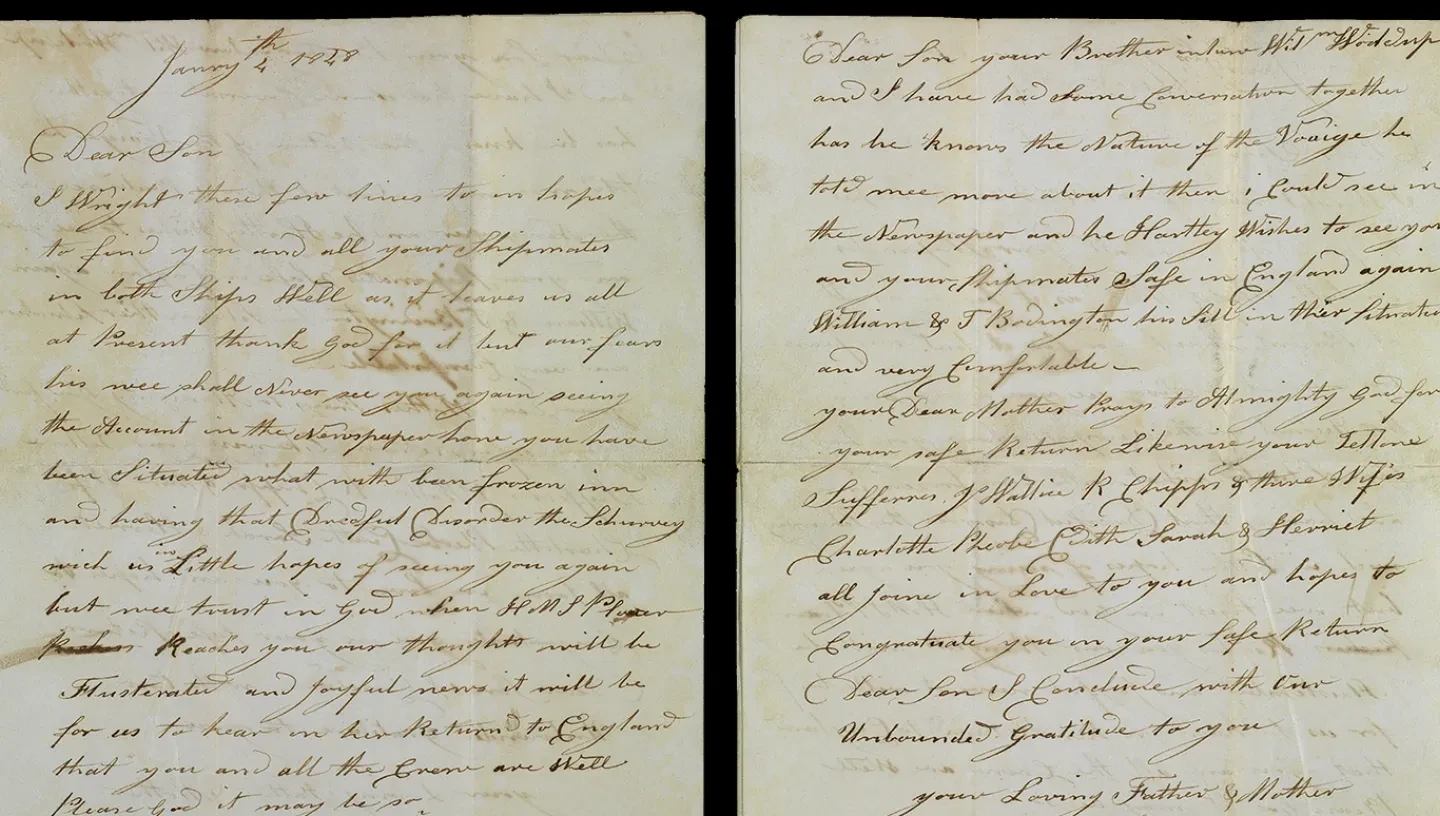 Janry 4th 1848
Dear Son
I Wright these few lines to in hopes
to find you and all your Shipmates
in both Ships Well as it leaves us all
at Present thank God for it but our fears
his wee shall Never see you again seeing
the Account in the Newspaper how you have
been Situated what with been frozen inn
and having that Dreadful Disorder the Schurvey
wich us in Little hopes of seeing you again
but wee trust in God when HMS Plover
Reaches you our thoughts will be
Flusterated and Joyful news it will be
for us to hear on her Return to England
that you and all the Crew are Well
Please God it may be so
Dear Son your Brother inlaw Wm
and I have had Some Conversation together
has he knows the Nature of the Voaige he
told mee more about it then i Could see in
the Newspaper and he Hartley Wishes to see you
and your Shipmates Safe in England again
William & T Bodington his Sill in thier Situated
and very Comfortable
your Dear Mother Prays to Almighty God for
your safe Return Likewise your Fellow
Sufferres Js Wallice R Chipps & thare Wifes
Charlotte Pheobe Edith Sarah & Herriet
all Joine in Love to you and hopes to
Congratuate you on your Safe Return
Dear Son I Conclude with Our
Unbounded Gratitude to you
your Loving Father & Mother